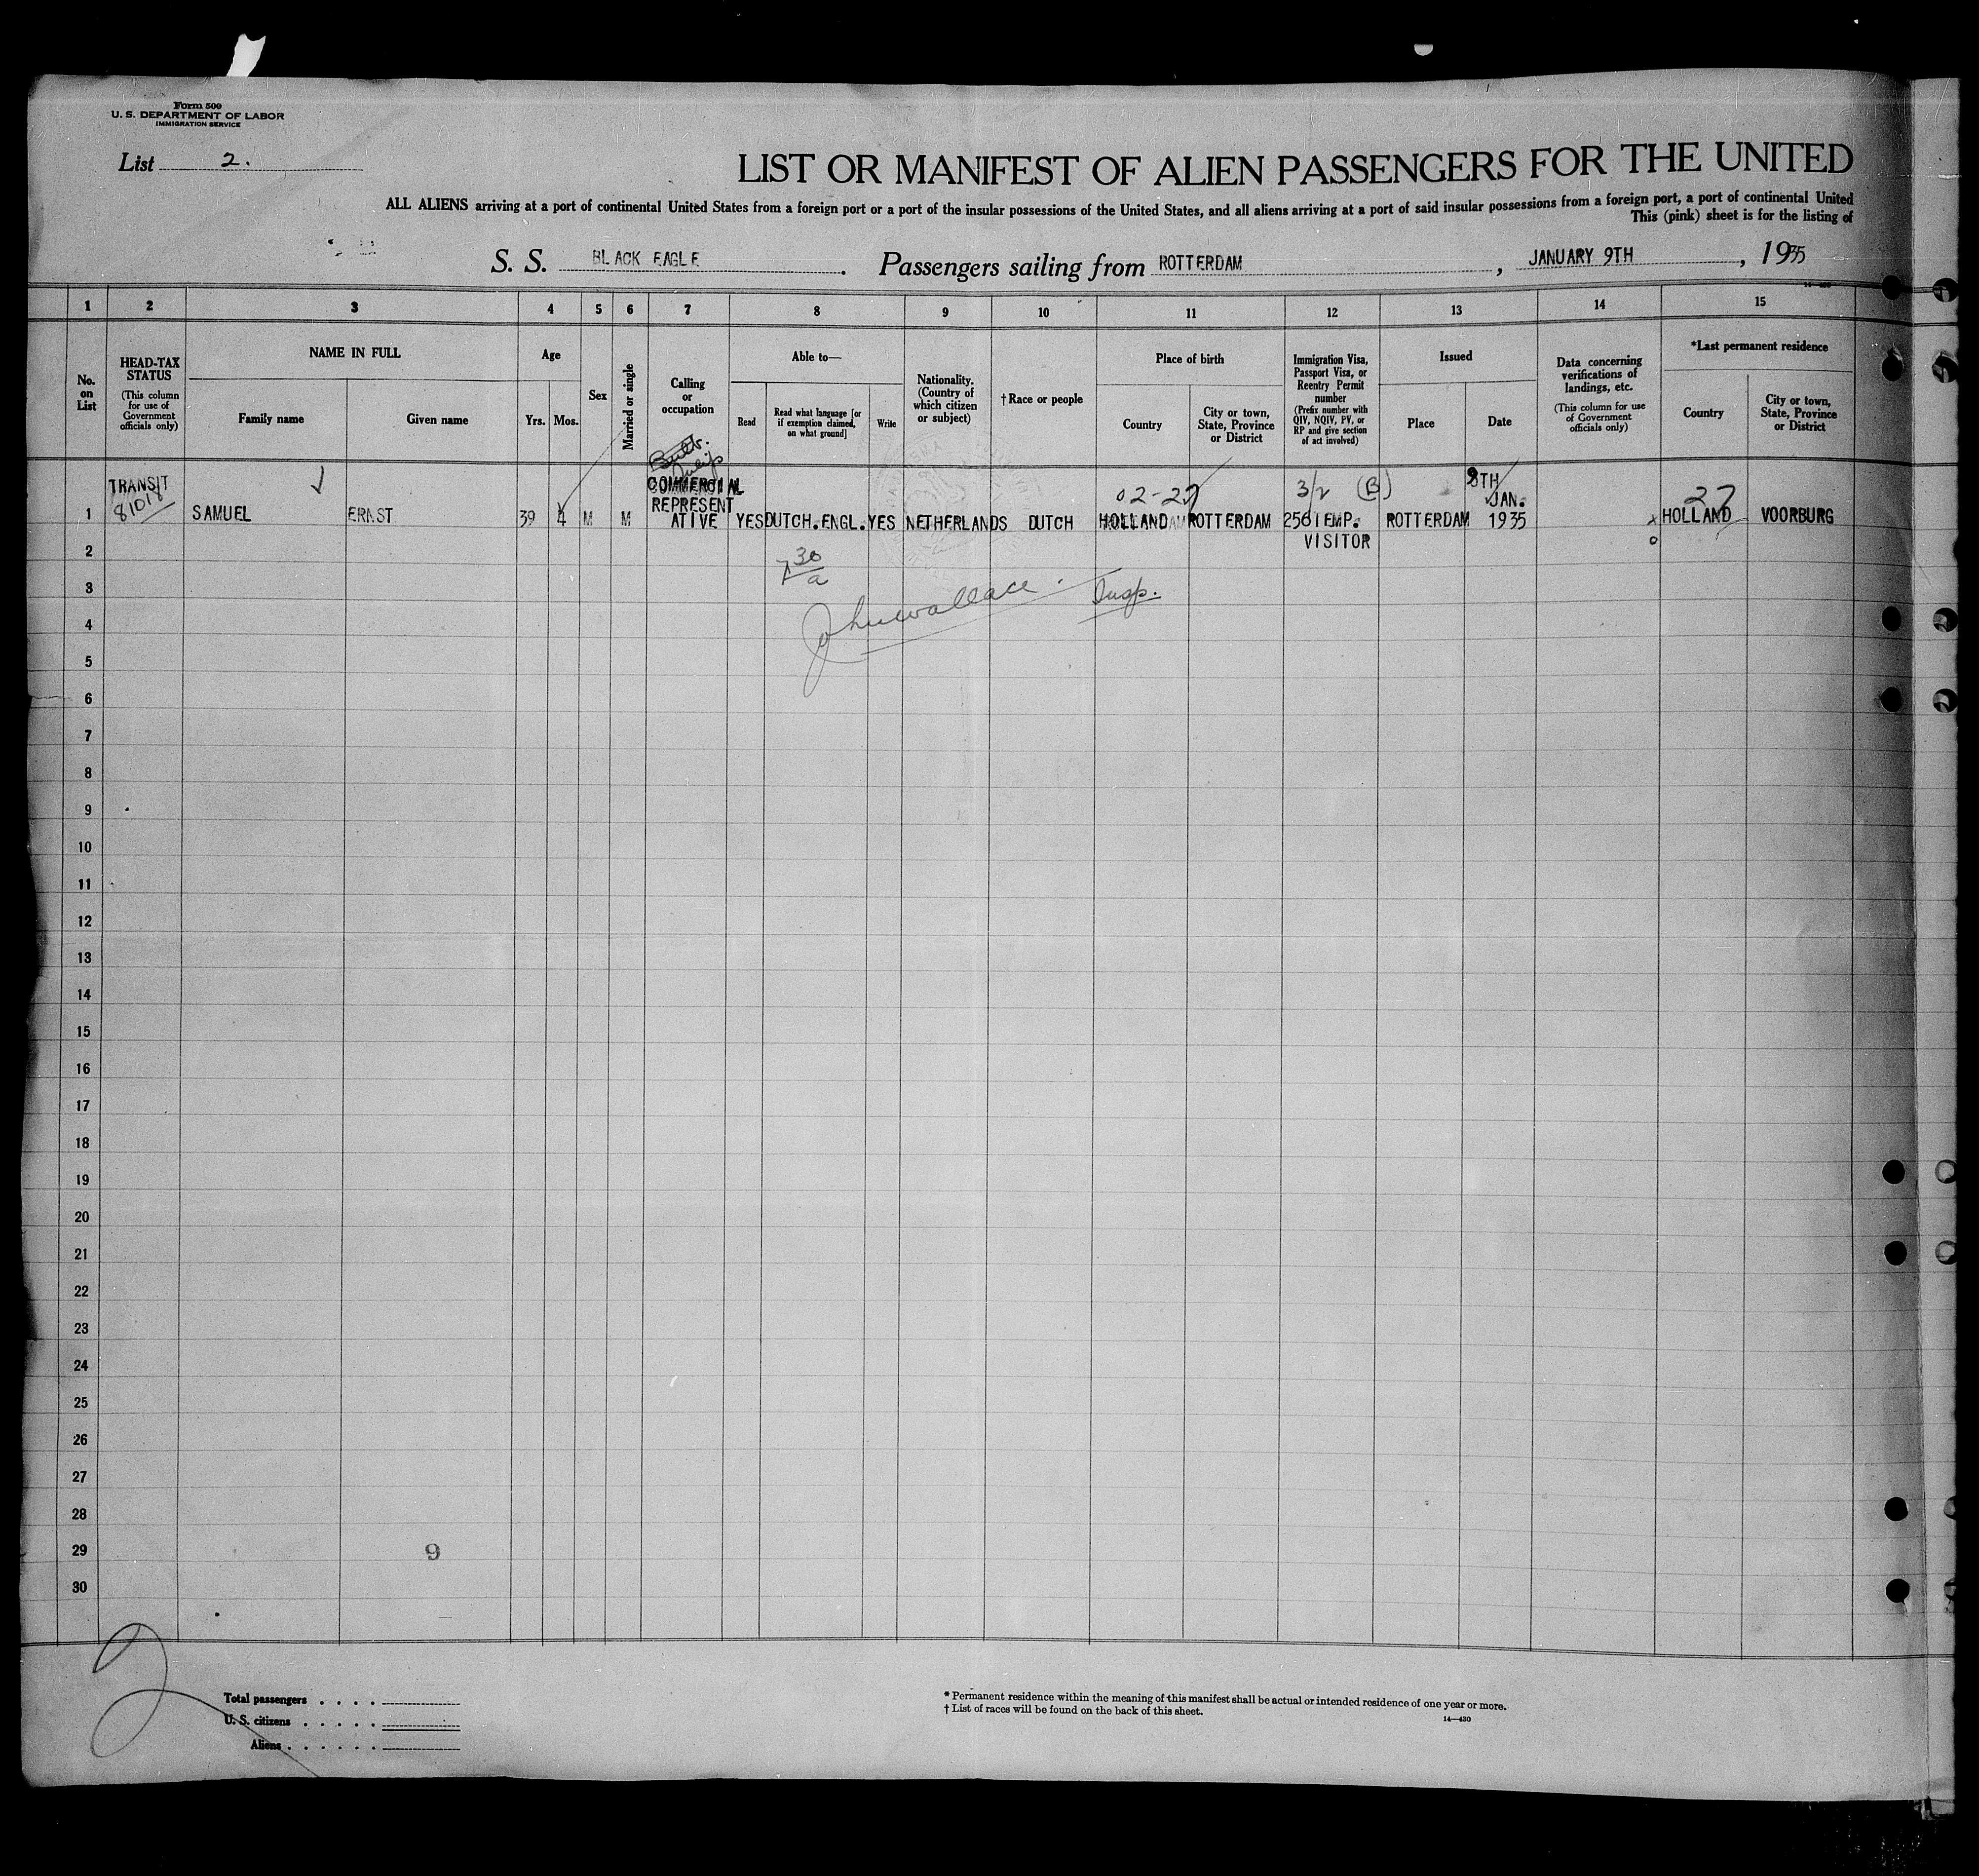 Form 500
U. S. DEPARTMENT OF LABOR
IMMIGRATION SERVICE
List 2.
LIST OR MANIFEST OF ALIEN PASSENGERS FOR THE UNITED
ALL ALIENS arriving at a port of continental United States from a foreign port or a port of the insular possessions of the United States, and all aliens arriving at a port of said insular possessions from a foreign port, a port of continental United
This (pink) sheet is for the listing of
S. S. BLACK EAGLE. Passengers sailing from ROTTERDAM, JANUARY 9TH, 1935
1 2 3 4 5 6 7 8 9 10 11 12 13 14 15
No. on List
HEAD-TAX STATUS
(This column for use of Government officials only)
NAME IN FULL
Family name
Given name
Age
Yrs.
Mos.
Sex
Married or single
Calling or occupation
Able to—
Read
Read what language [or if exemption claimed, on what ground]
Write
Nationality. (Country of which citizen or subject)
†Race or people
Place of birth
Country
City or town, State, Province or District
Immigration Visa, Passport Visa, or Reentry Permit number
(Prefix number with QIV, NQIV, PV, or RP and give section of act involved)
Issued
Place
Date
Data concerning verifications of landings, etc.
(This column for use of Government officials only)
*Last permanent residence
Country
City or town, State, Province or District
TRANSIT
81018
1 SAMUEL ERNST 39 4 M M
COMMERCIAL
REPRESENT
ATIVE
YES DUTCH. ENGL. YES NETHERLANDS DUTCH
02-27
HOLLAND ROTTERDAM
3/2 (B)
256 TEMP.
VISITOR
ROTTERDAM
8TH
JAN.
1935
x
o
27
HOLLAND VOORBURG
2
7 30/a
3
John Wallace Insp.
4
5
6
7
8
9
10
11
12
13
14
15
16
17
18
19
20
21
22
23
24
25
26
27
28
29
9
30
Total passengers . . . .
U. S. citizens . . . . .
Aliens . . . . . .
* Permanent residence within the meaning of this manifest shall be actual or intended residence of one year or more.
† List of races will be found on the back of this sheet.
14—430